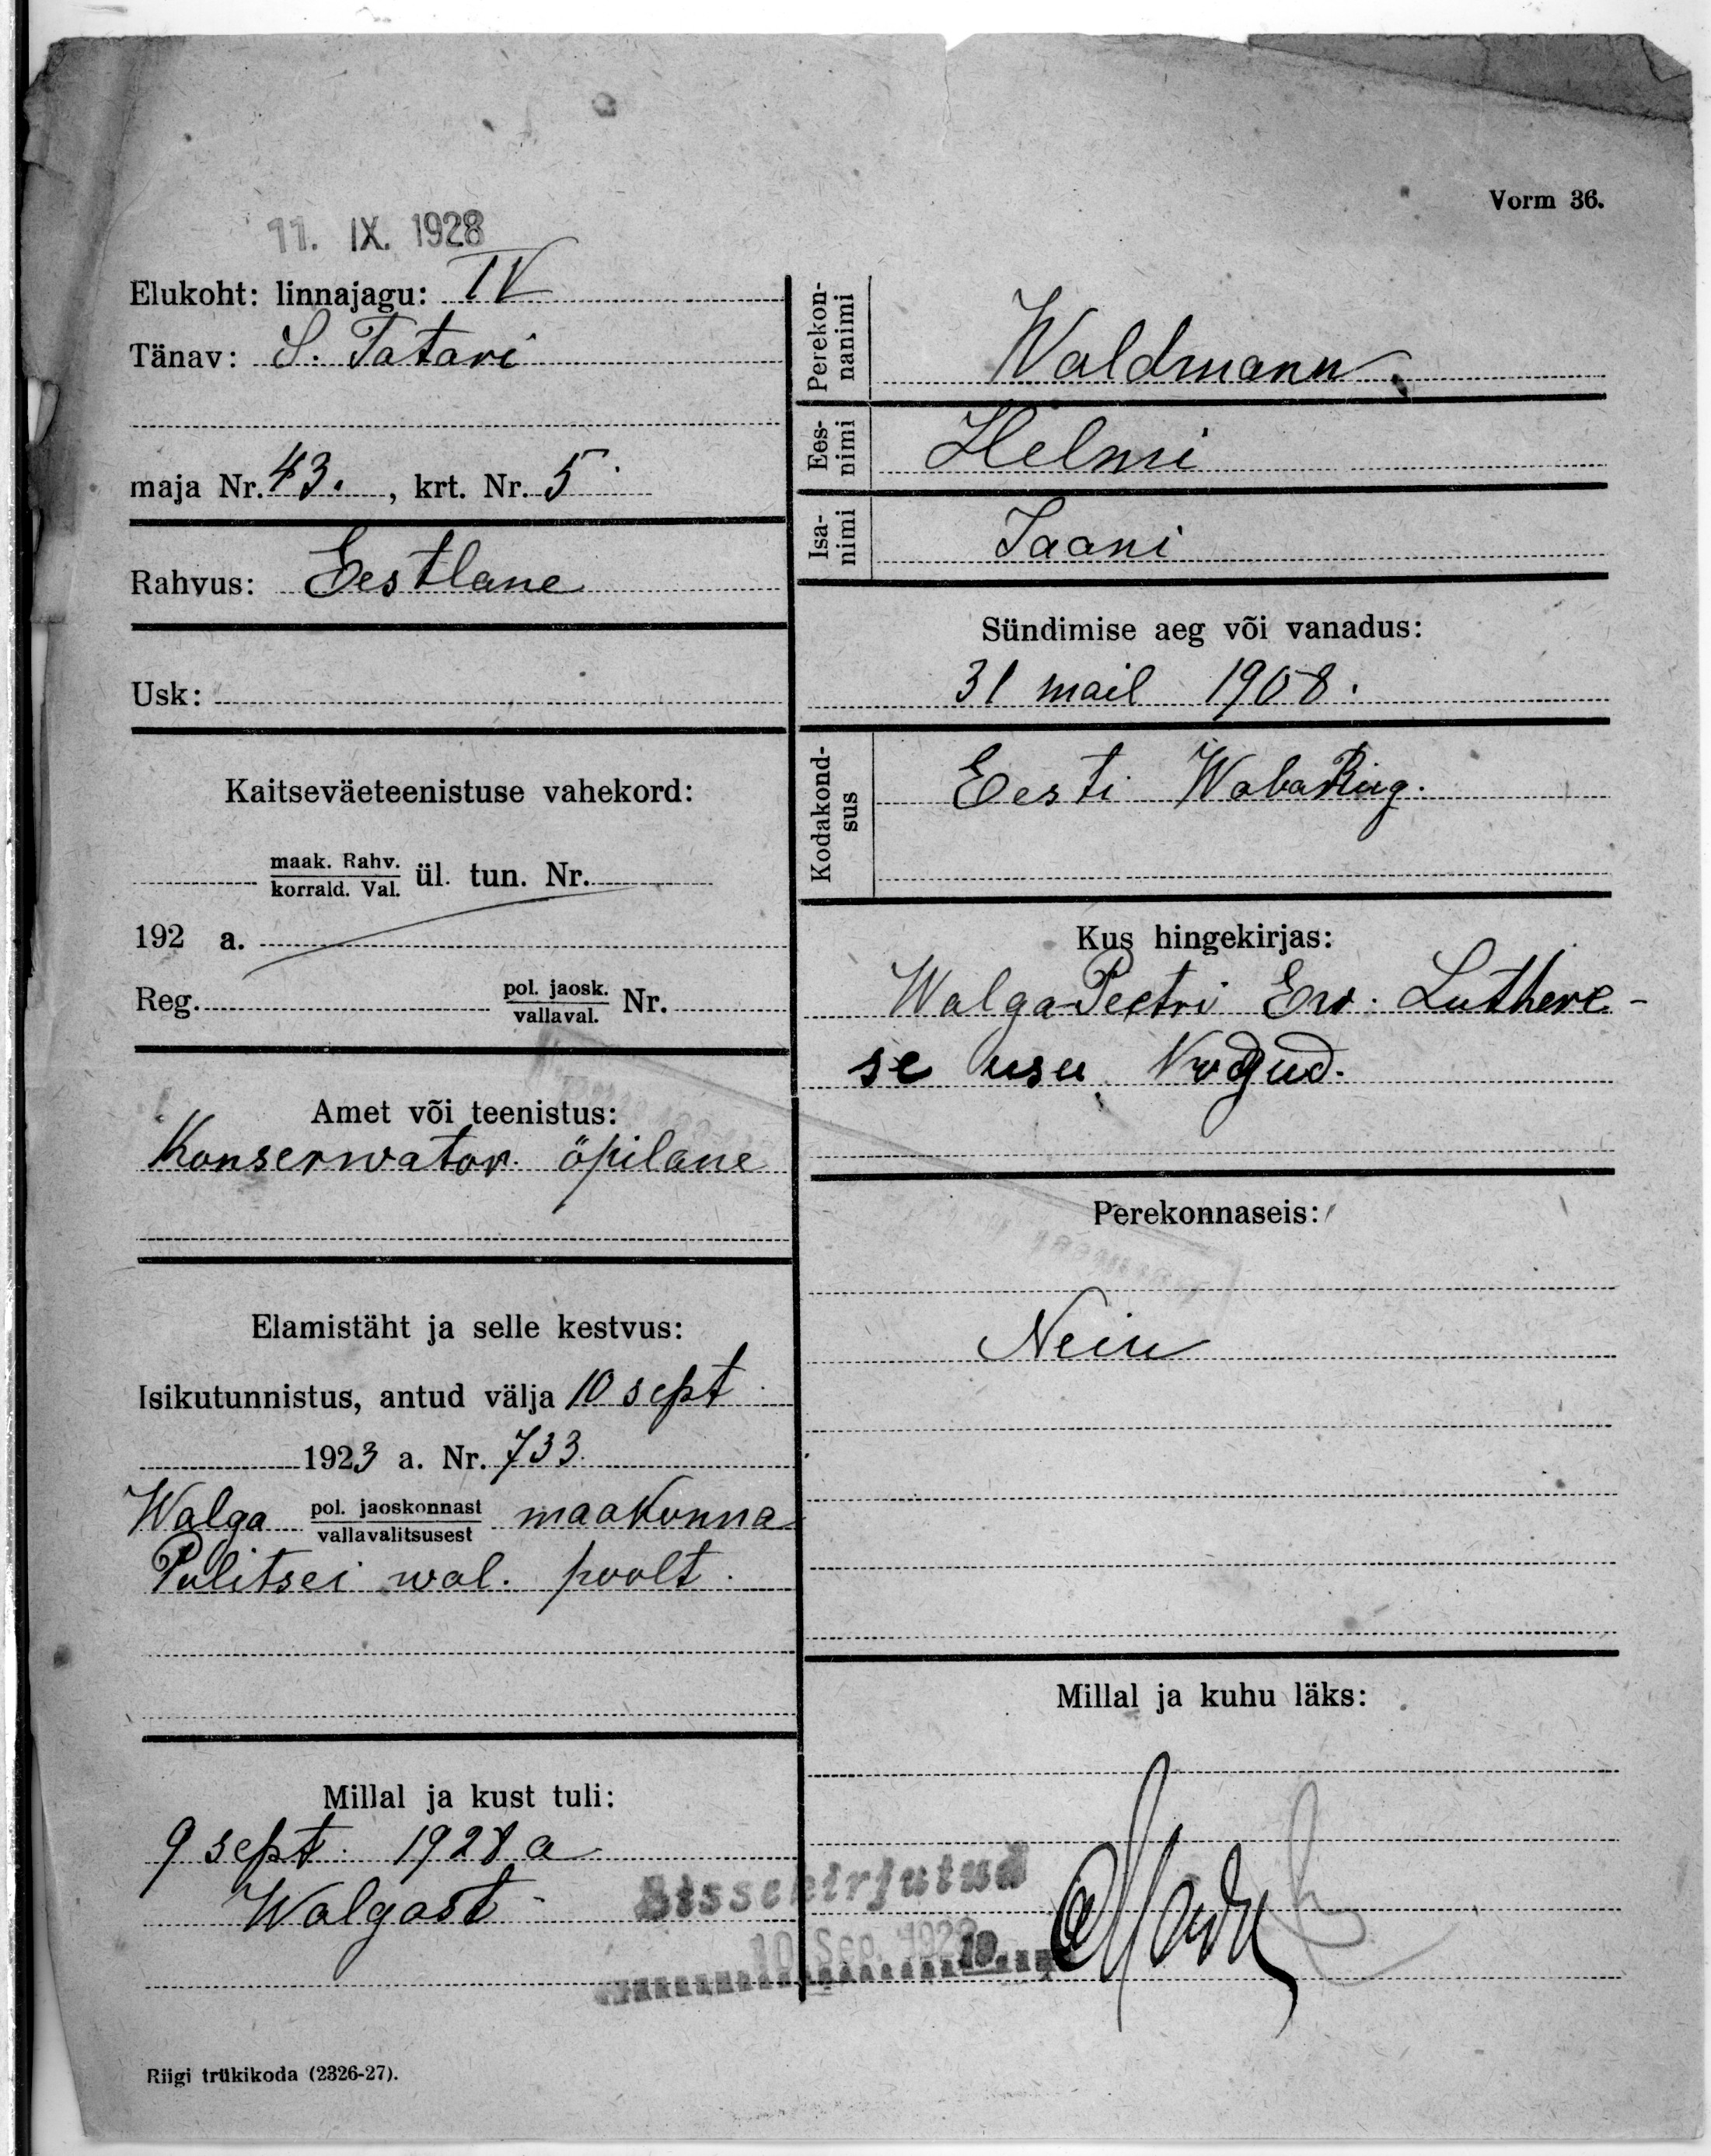 Vorm 36.
11. IX. 1928
Elukoht: linnajagu: IV
Tänav: S. Tatari
maja Nr. 43. , krt. Nr. 5
Rahvus: Eestlane
Usk:
Kaitseväeteenistuse vahekord:
maak. Rahv.
korrald. Val. ül. tun. Nr.
192 a.
Reg. pol. jaosk. Nr.
vallaval.
Amet või teenistus:
Konserwator. öpilane
Elamistäht ja selle kestvus:
Isikutunnistus, antud välja 10 sept.
1923 a. Nr. 733
Walga pol. jaoskonnast maakonna
vallavalitsusest
Politsei wal. poolt.
Millal ja kust tuli:
9 sept. 1928 a
Walgast
Perekon-
nanimi Waldmann
Ees-
nimi Helmi
Isa-
nimi Jaani
Sündimise aeg või vanadus:
31 mail 1908.
Kodakond-
sus Eesti Waba Riig.
Kus hingekirjas:
Walga Peetri Ew. Luthere-
se usu Kogud.
Perekonnaseis:
Neiu
Millal ja kuhu läks:
Sissekirjutud
10 Sep. 1928 19
Riigi trükikoda (2326-27).